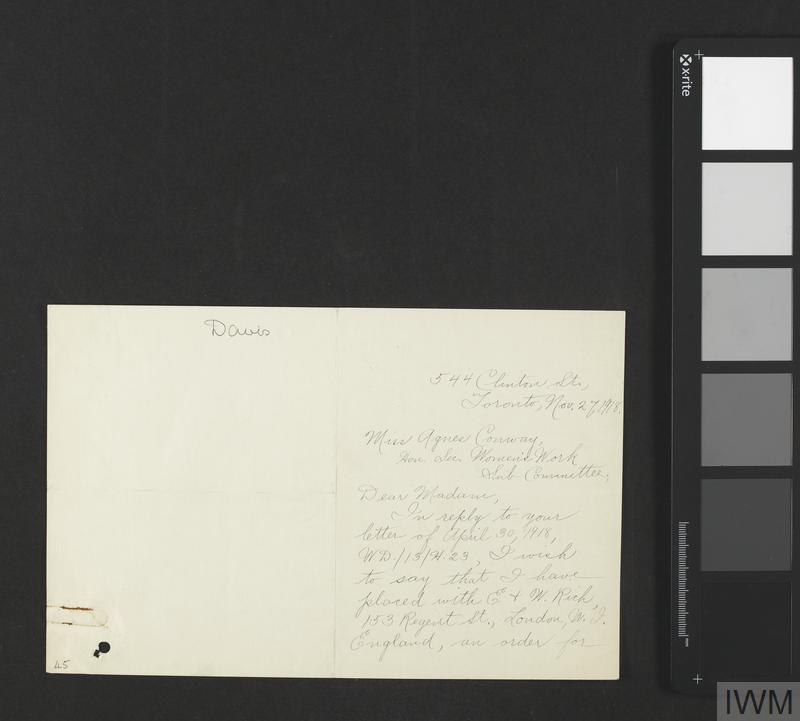 Davis
45
544 Clinton St.,
Toronto, Nov. 27, 1918.
Miss Agnes Conway,
Hon. Sec. Women's Work
Sub-Committee,
Dear Madam,
In reply to your
letter of April 30, 1918,
W.D./13/H.23, I wish
to say that I have
placed with E & W. Rich,
153 Regent St., London, W. I.
England, an order for
x-rite
IWM